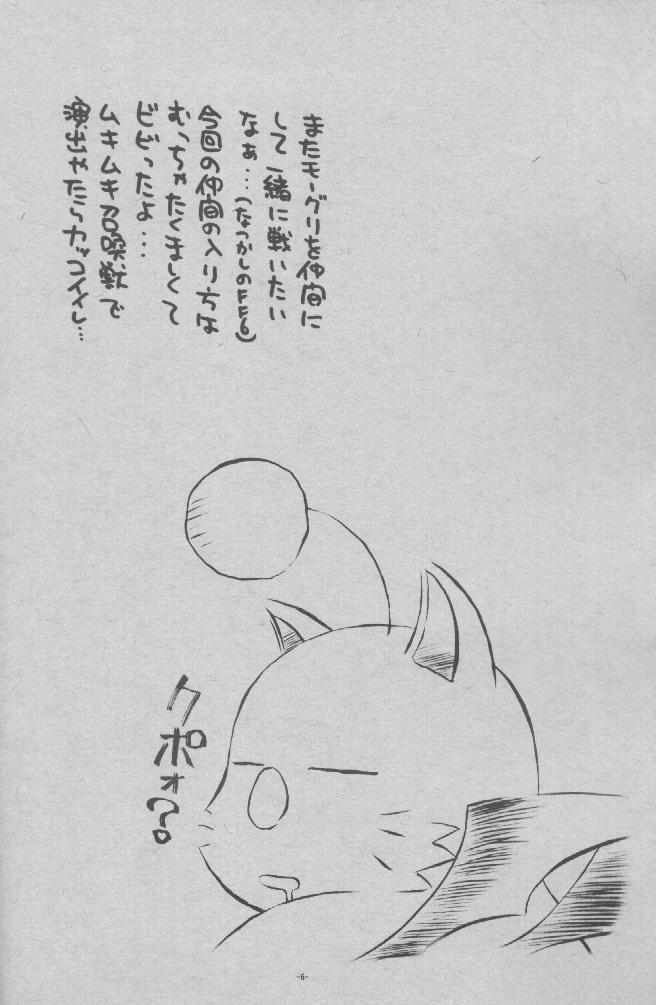 またモーグリを仲間に
して一緒に戦いたい
なぁ…(なつかしのFF6)
今回の仲間の入り方な
むっちゃたくましくて
ビビったよ…
ムキムキ召喚獣で
演出やたらカッコイイし…
クポォ～。
-6-